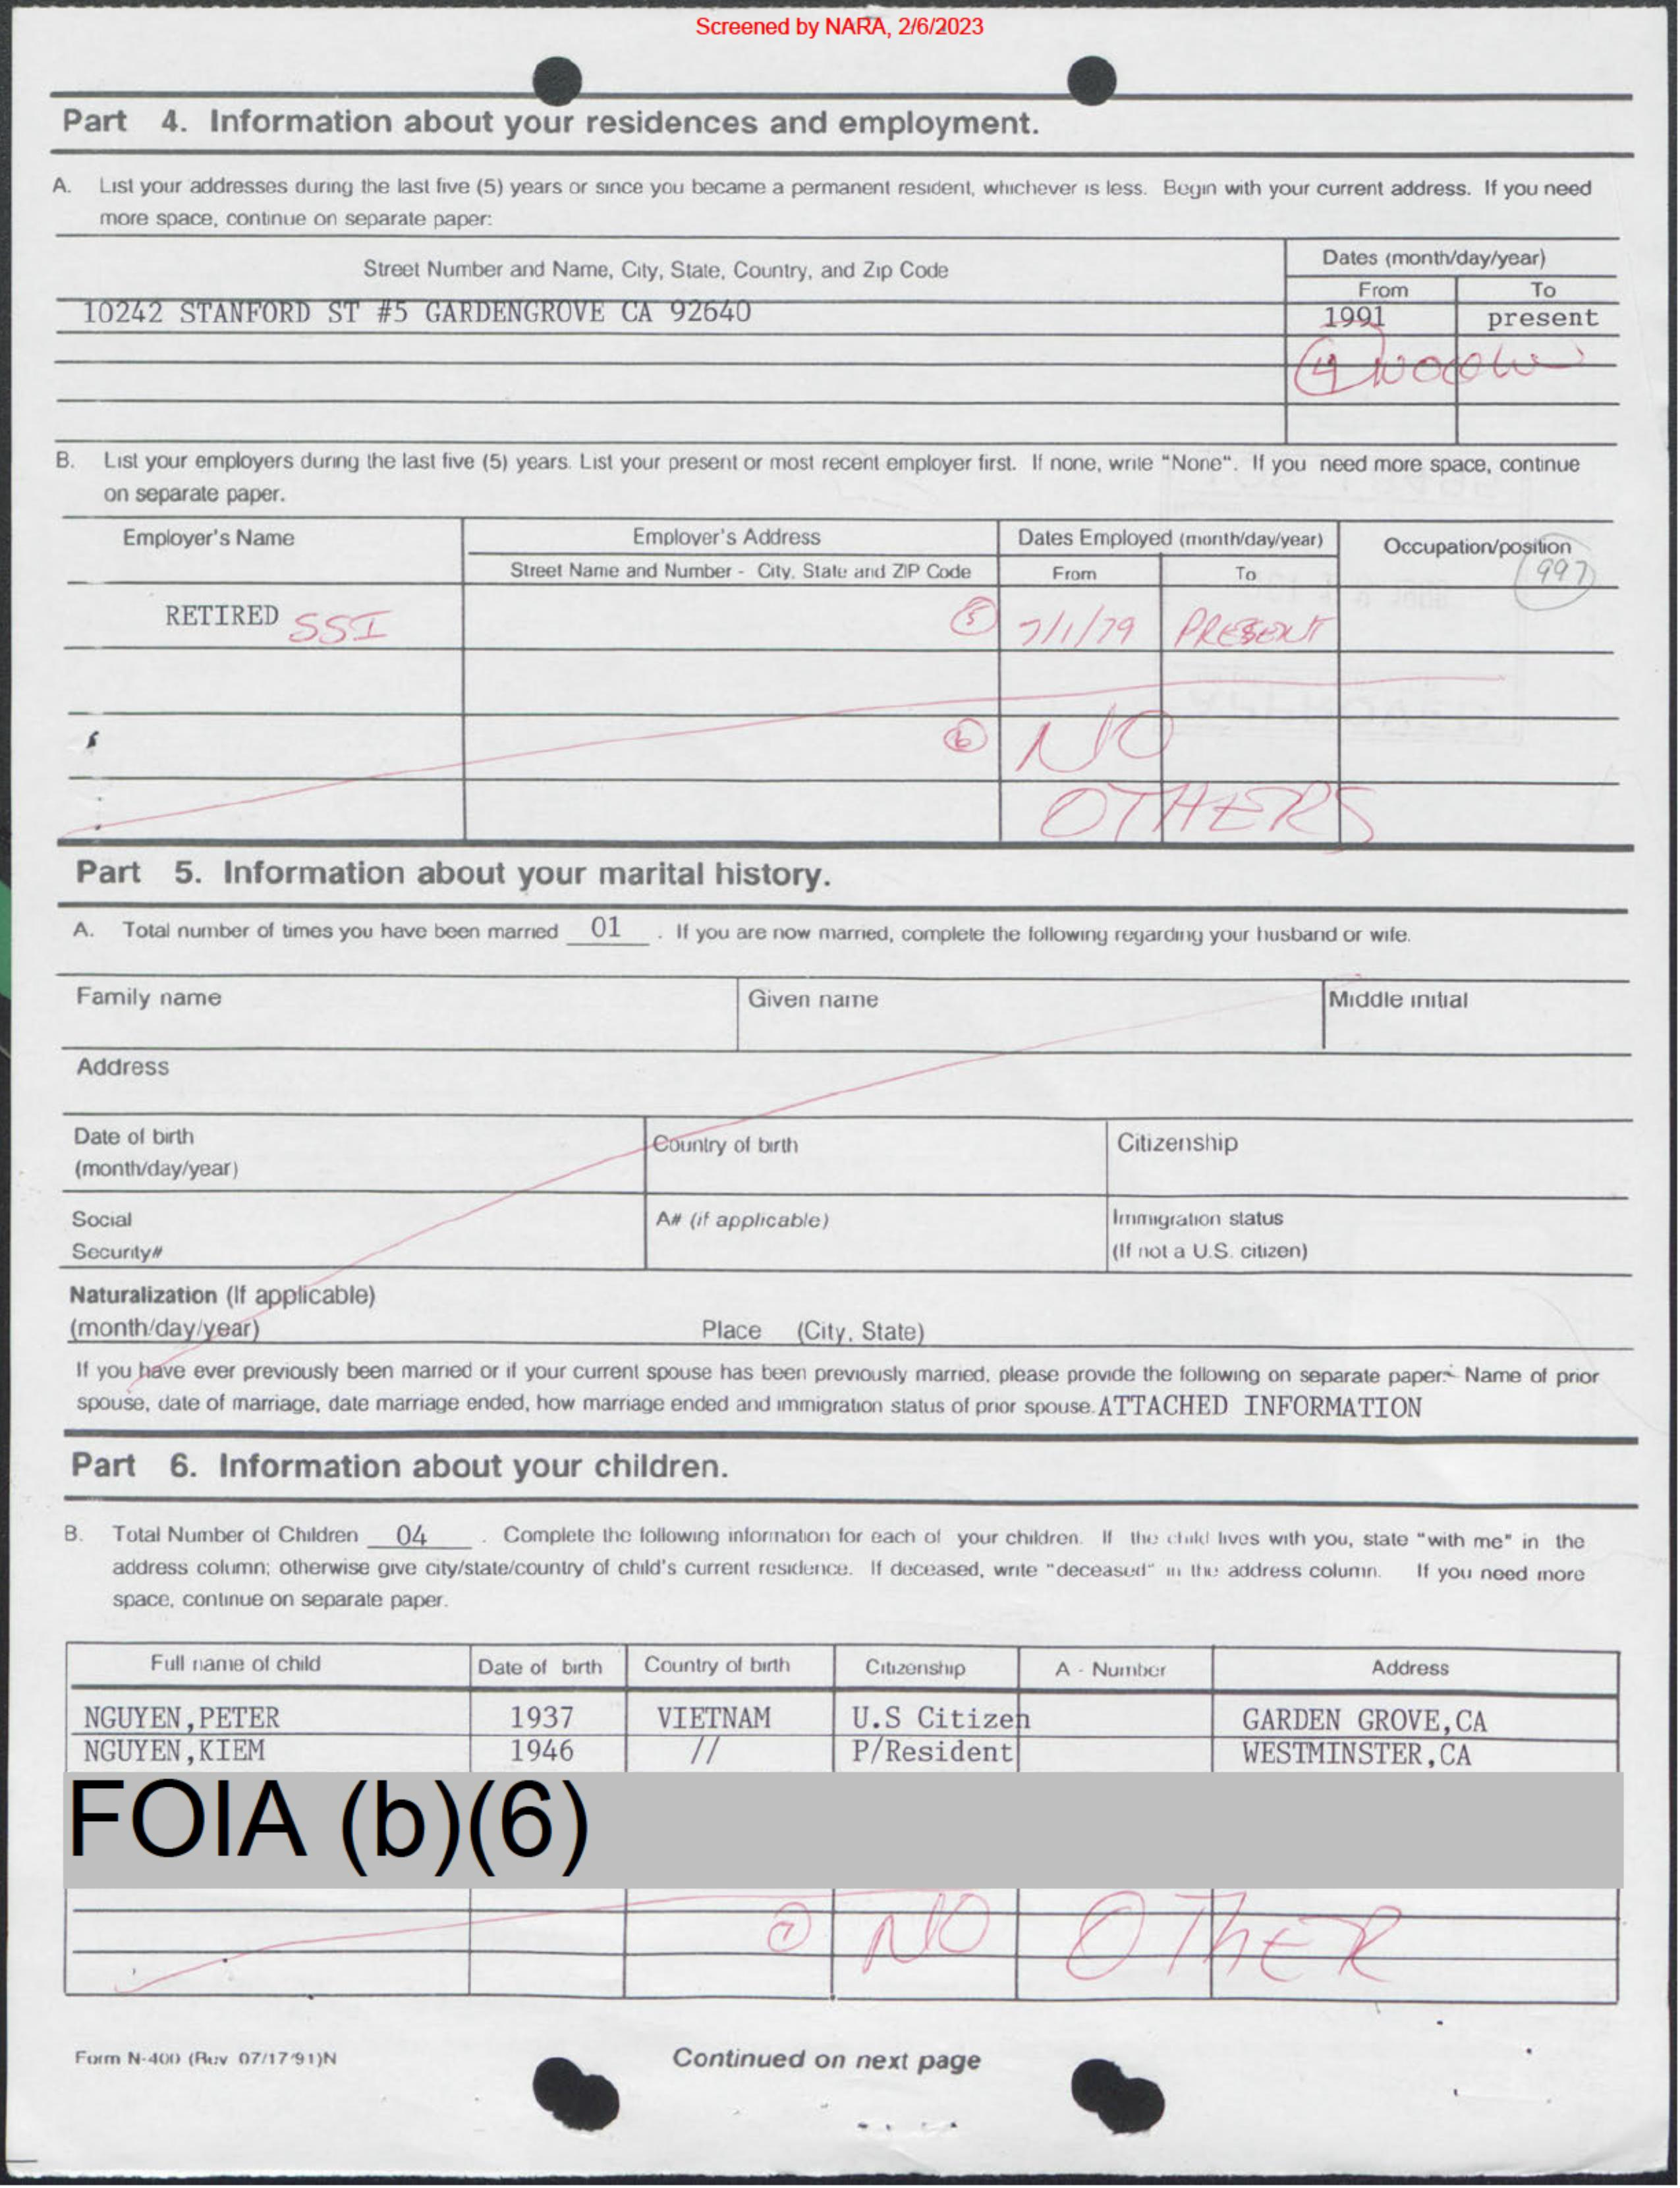 Screened by NARA, 2/6/2023
Part 4. Information about your residences and employment.
A. List your addresses during the last five (5) years or since you became a permanent resident, whichever is less. Begin with your current address. If you need
more space, continue on separate paper:
Street Number and Name, City, State, Country, and Zip Code
Dates (month/day/year)
From To
10242 STANFORD ST #5 GARDENGROVE CA 92640 1991 present
4
B. List your employers during the last five (5) years. List your present or most recent employer first. If none, write "None". If you need more space, continue
on separate paper.
Employer's Name Employer's Address Dates Employed (month/day/year) Occupation/position
Street Name and Number - City, State and ZIP Code From To 997
RETIRED SSI 5 7/1/79 PRESENT
6 NO
OTHERS
Part 5. Information about your marital history.
A. Total number of times you have been married 01 . If you are now married, complete the following regarding your husband or wife.
Family name Given name Middle initial
Address
Date of birth Country of birth Citizenship
(month/day/year)
Social A# (if applicable) Immigration status
Security# (If not a U.S. citizen)
Naturalization (If applicable)
(month/day/year) Place (City, State)
If you have ever previously been married or if your current spouse has been previously married, please provide the following on separate paper: Name of prior
spouse, date of marriage, date marriage ended, how marriage ended and immigration status of prior spouse. ATTACHED INFORMATION
Part 6. Information about your children.
B. Total Number of Children 04 . Complete the following information for each of your children. If the child lives with you, state "with me" in the
address column; otherwise give city/state/country of child's current residence. If deceased, write "deceased" in the address column. If you need more
space, continue on separate paper.
Full name of child Date of birth Country of birth Citizenship A - Number Address
NGUYEN,PETER 1937 VIETNAM U.S Citizen GARDEN GROVE,CA
NGUYEN,KIEM 1946 // P/Resident WESTMINSTER,CA
FOIA (b)(6)
7 NO OTHER
Form N-400 (Rev 07/17/91)N Continued on next page